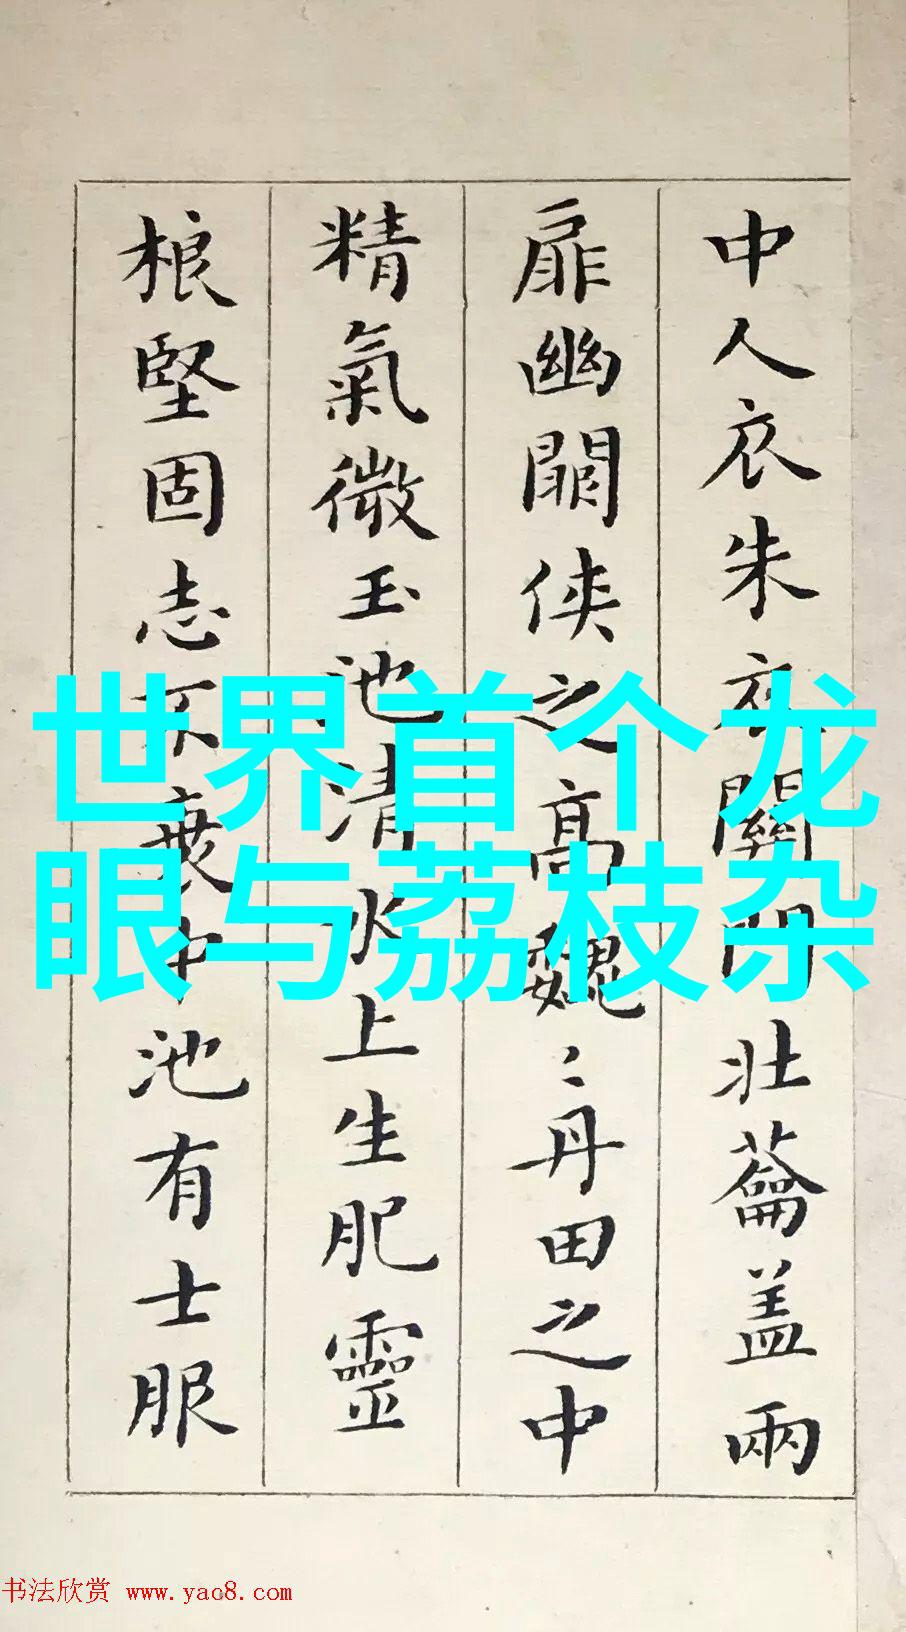 中人衣朱衣關門壯蘥盖兩
扉幽關俠之高巍〻丹田之中
精氣微玉池清水上生肥靈
根堅固志不衰中池有士服
世界首个龙
眼与荔枝杂
书法欣赏 www.yac8.com